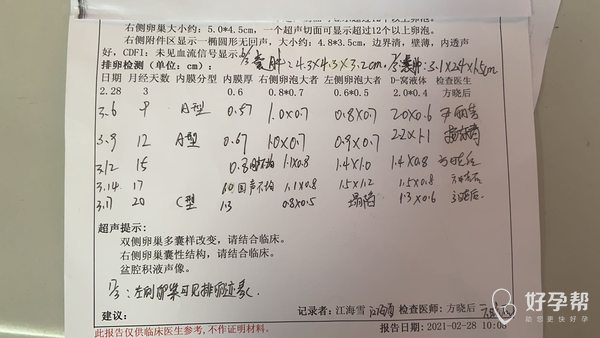 右侧卵巢大小约：5.0*4.5cm，一个超声切面可显示超过12个以上卵泡。
右侧附件区显示一椭圆形无回声，大小约：4.8*3.5cm，边界清，壁薄，内透声
好，CDFI：未见血流信号显示
4.3×4.3×3.2cm. 3.1×2.4×1.5cm
排卵检测（单位：cm）：
日期 月经天数 内膜分型 内膜厚 右侧卵泡大者 左侧卵泡大者 D-窝液体 检查医生
2.28 3 0.6 0.8*0.7 0.6*0.5 2.0*0.4 方晓后
3.6 9 A型 0.57 1.0×0.7 0.9×0.8 2.0×0.6
3.9 12 A型 0.67 1.0×0.7 0.9×0.7 2.2×1.1
3.12 15 0.8 1.1×0.8 1.4×1.0 1.4×0.8 方晓后
3.14 17 1.0 回声不均 1.1×0.8 1.5×1.2 1.5×0.8 方晓后
3.17 20 C型 1.3 0.8×0.5 塌陷 1.3×0.6 方晓后
超声提示：
双侧卵巢多囊样改变，请结合临床。
右侧卵巢囊性结构，请结合临床。
盆腔积液声像。
左侧卵巢可见排卵迹象
建议：
记录者：江海雪 检查医师：方晓后
此报告仅供临床医生参考，不作证明材料。 报告日期：2021-02-28 10:08
好孕帮
助您更快好孕